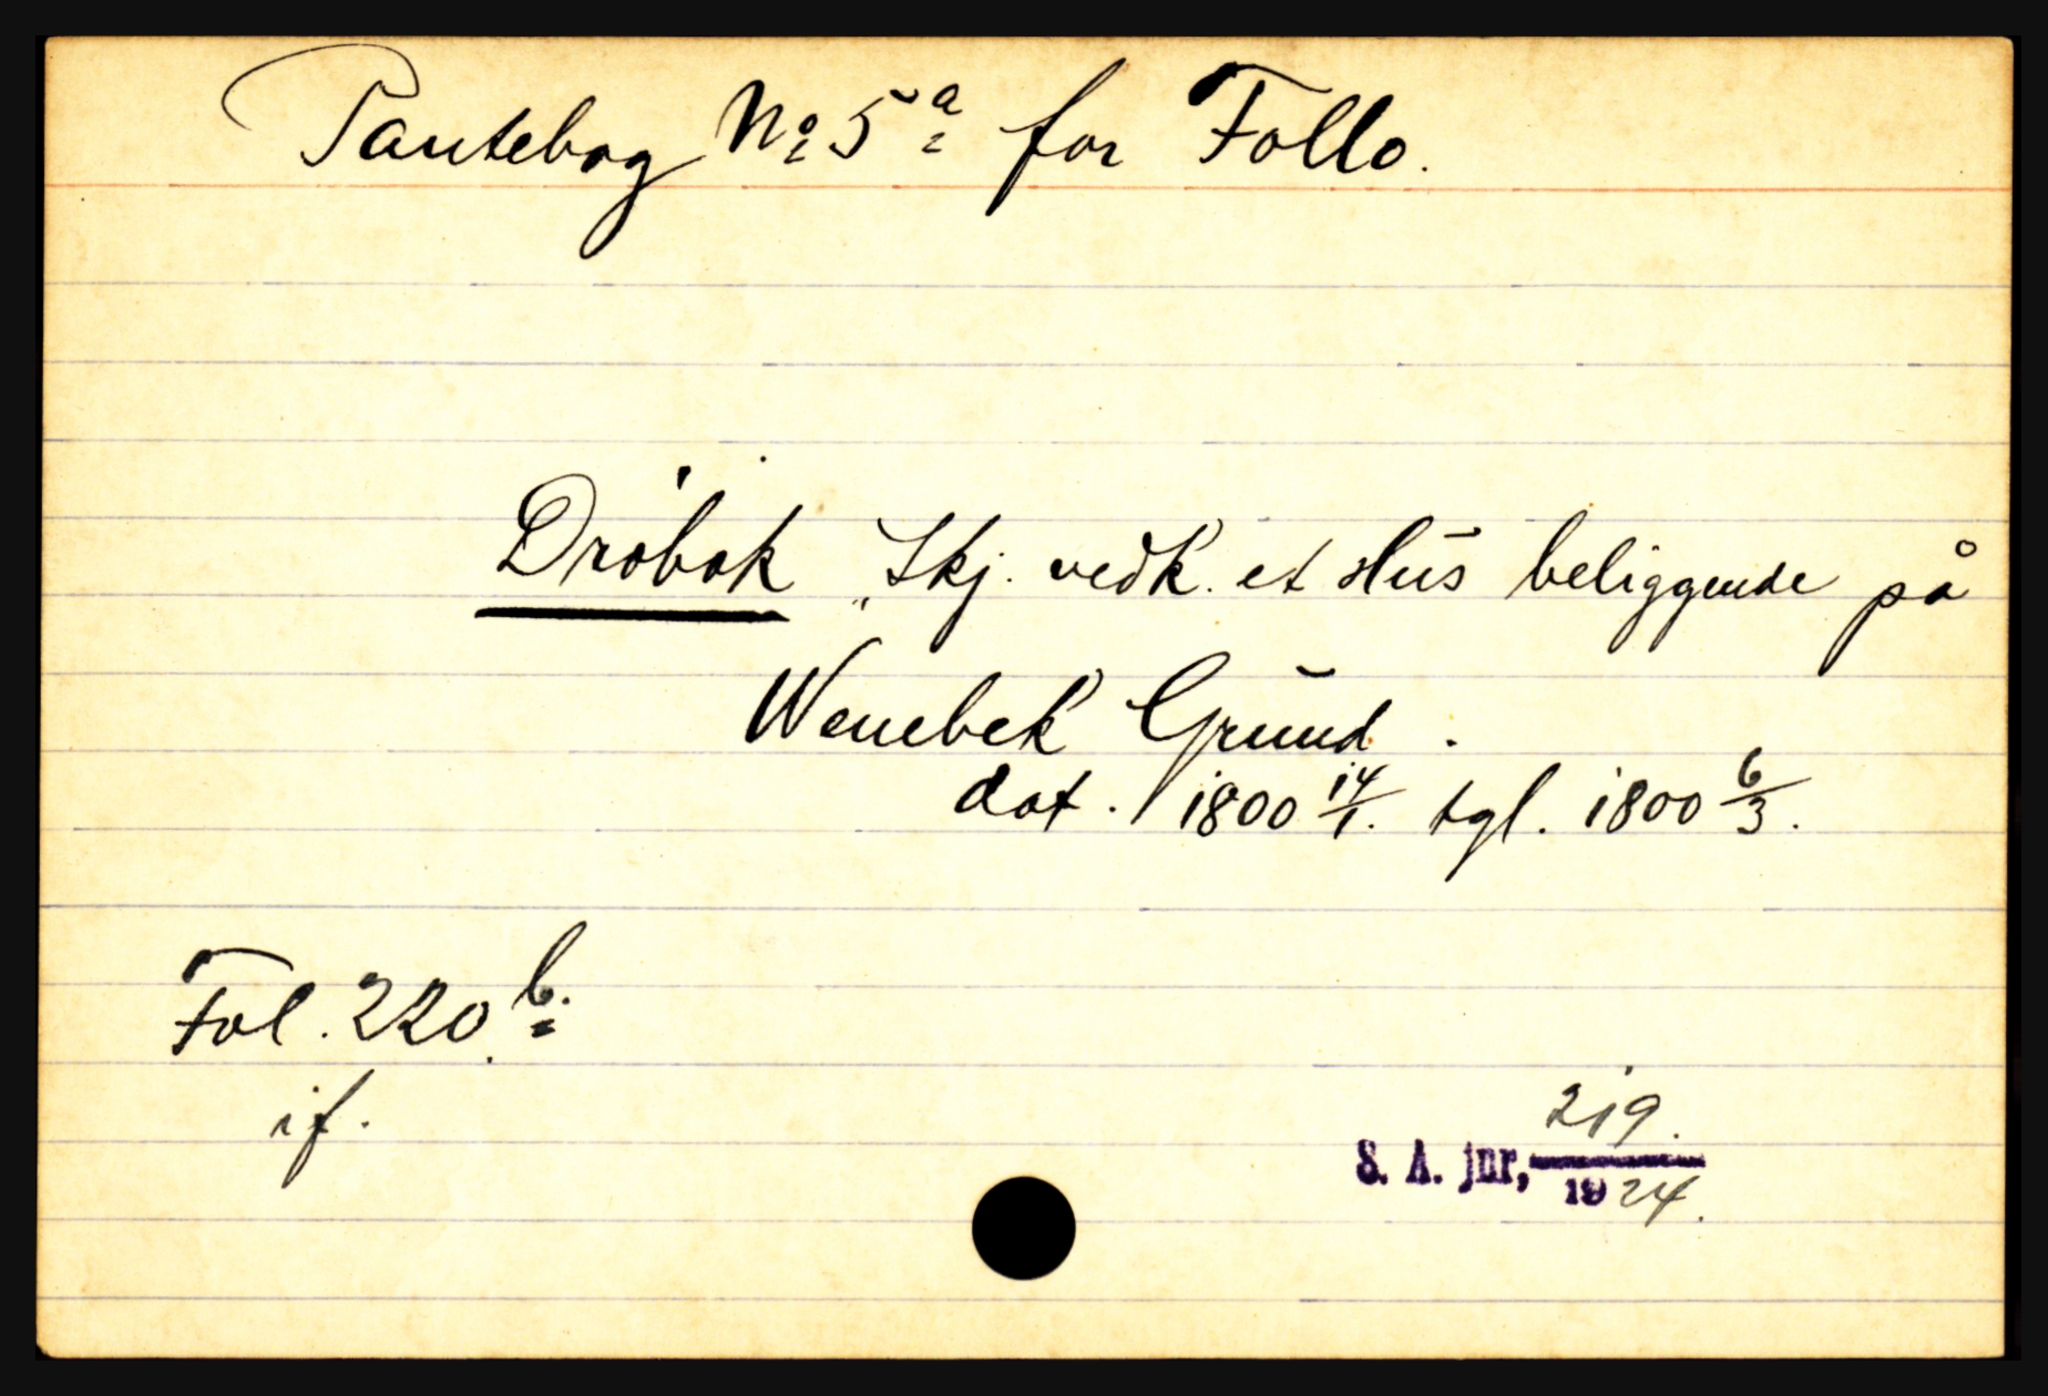 Pantebog No 5a for Follo.
Dröbak „Skj. vedk. et Hus beliggende på
Wenebek Grund.
dat. 1800 14/1. tgl. 1800 6/3.
Fol. 220 b.
if.
219.
S. A. jnr, 1924.